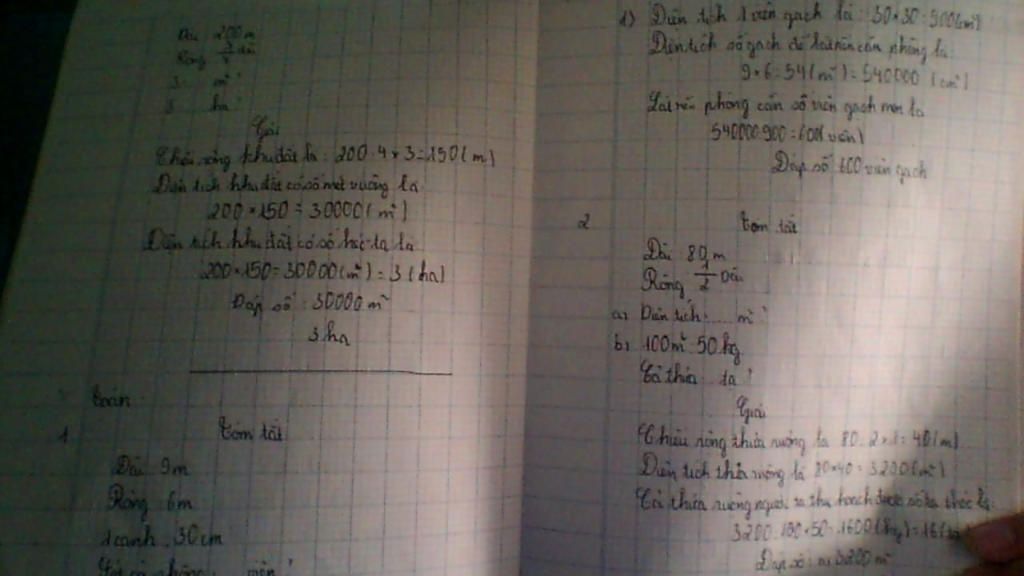 Dài 200 m
Rộng 3/4 dài
S: m²
S: ha?
Giải
Chiều rộng khu đất là: 200 : 4 × 3 = 150 (m)
Diện tích khu đất có số mét vuông là
200 × 150 = 30000 (m²)
Diện tích khu đất có số héc-ta là
200 × 150 = 30000 (m²) = 3 (ha)
Đáp số: 30000 m²
3 ha
Toán
1 Tóm tắt
Dài 9m
Rộng 6m
1 cạnh 30cm
viên?
1) Diện tích 1 viên gạch là: 30 × 30 = 900 (cm²)
Diện tích số gạch để lát nền căn phòng là
9 × 6 = 54 (m²) = 540000 (cm²)
Lát nền phòng cần số viên gạch men là
540000 : 900 = 600 (viên)
Đáp số 600 viên gạch
2 Tóm tắt
Dài 80 m
Rộng 1/2 Dài
a) Diện tích: ... m²?
b) 100m² 50 kg
Cả thửa ... tạ?
Giải
Chiều rộng thửa ruộng là 80 : 2 × 1 = 40 (m)
Diện tích thửa ruộng là 80 × 40 = 3200 (m²)
Cả thửa ruộng người ta thu hoạch được số tạ thóc là
3200 : 100 × 50 = 1600 (kg) = 16 (tạ
Đáp số: a) 3200 m²